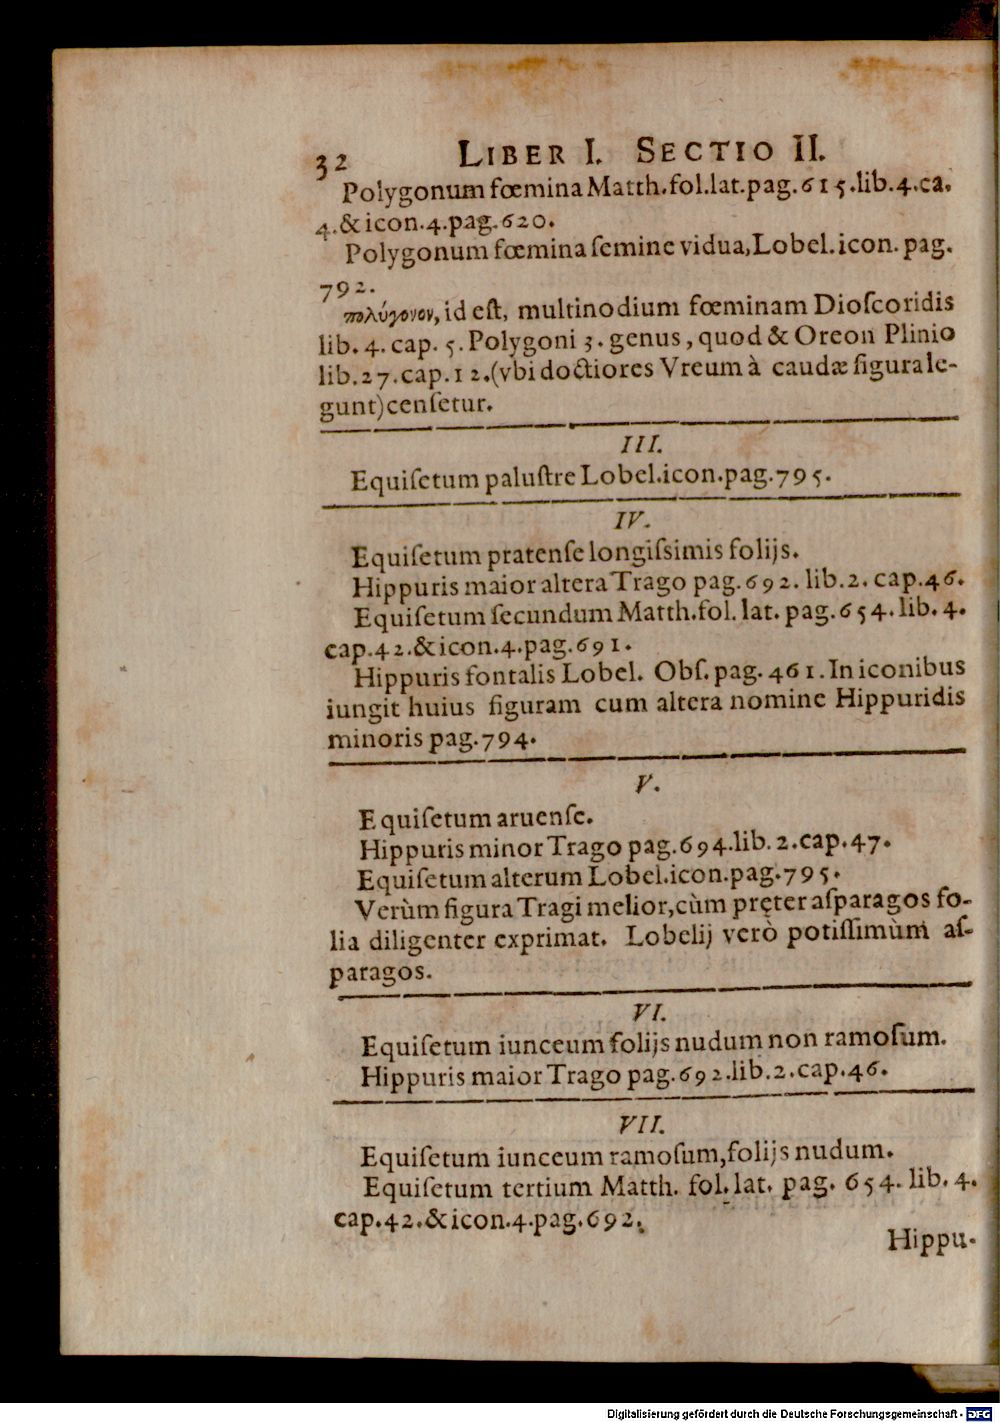 32 LIBER I. SECTIO II.
Polygonum fœmina Matth.fol.lat.pag.615.lib.4.ca.
4.&icon.4.pag.620.
Polygonum fœmina ſemine vidua,Lobel.icon.pag.
792.
πολύγονον, id eſt, multinodium fœminam Dioſcoridis
lib.4.cap.5.Polygoni 3.genus, quod & Oreon Plinio
lib.27.cap.12.(vbi doctiores Vreum à caudæ figura le-
gunt)cenſetur.
III.
Equiſetum paluſtre Lobel.icon.pag.795.
IV.
Equiſetum pratenſe longiſsimis folijs.
Hippuris maior altera Trago pag.692.lib.2.cap.46.
Equiſetum ſecundum Matth.fol.lat.pag.654.lib.4.
cap.42.&icon.4.pag.691.
Hippuris fontalis Lobel. Obſ.pag.461.In iconibus
iungit huius figuram cum altera nomine Hippuridis
minoris pag.794.
V.
Equiſetum aruenſe.
Hippuris minor Trago pag.694.lib.2.cap.47.
Equiſetum alterum Lobel.icon.pag.795.
Verùm figura Tragi melior,cùm pręter aſparagos fo-
lia diligenter exprimat. Lobelij verò potiſſimùm aſ-
paragos.
VI.
Equiſetum iunceum folijs nudum non ramoſum.
Hippuris maior Trago pag.692.lib.2.cap.46.
VII.
Equiſetum iunceum ramoſum,folijs nudum.
Equiſetum tertium Matth. fol.lat. pag. 654. lib. 4.
cap.42.&icon.4.pag.692.
Hippu-
Digitalisierung gefördert durch die Deutsche Forschungsgemeinschaft - DFG